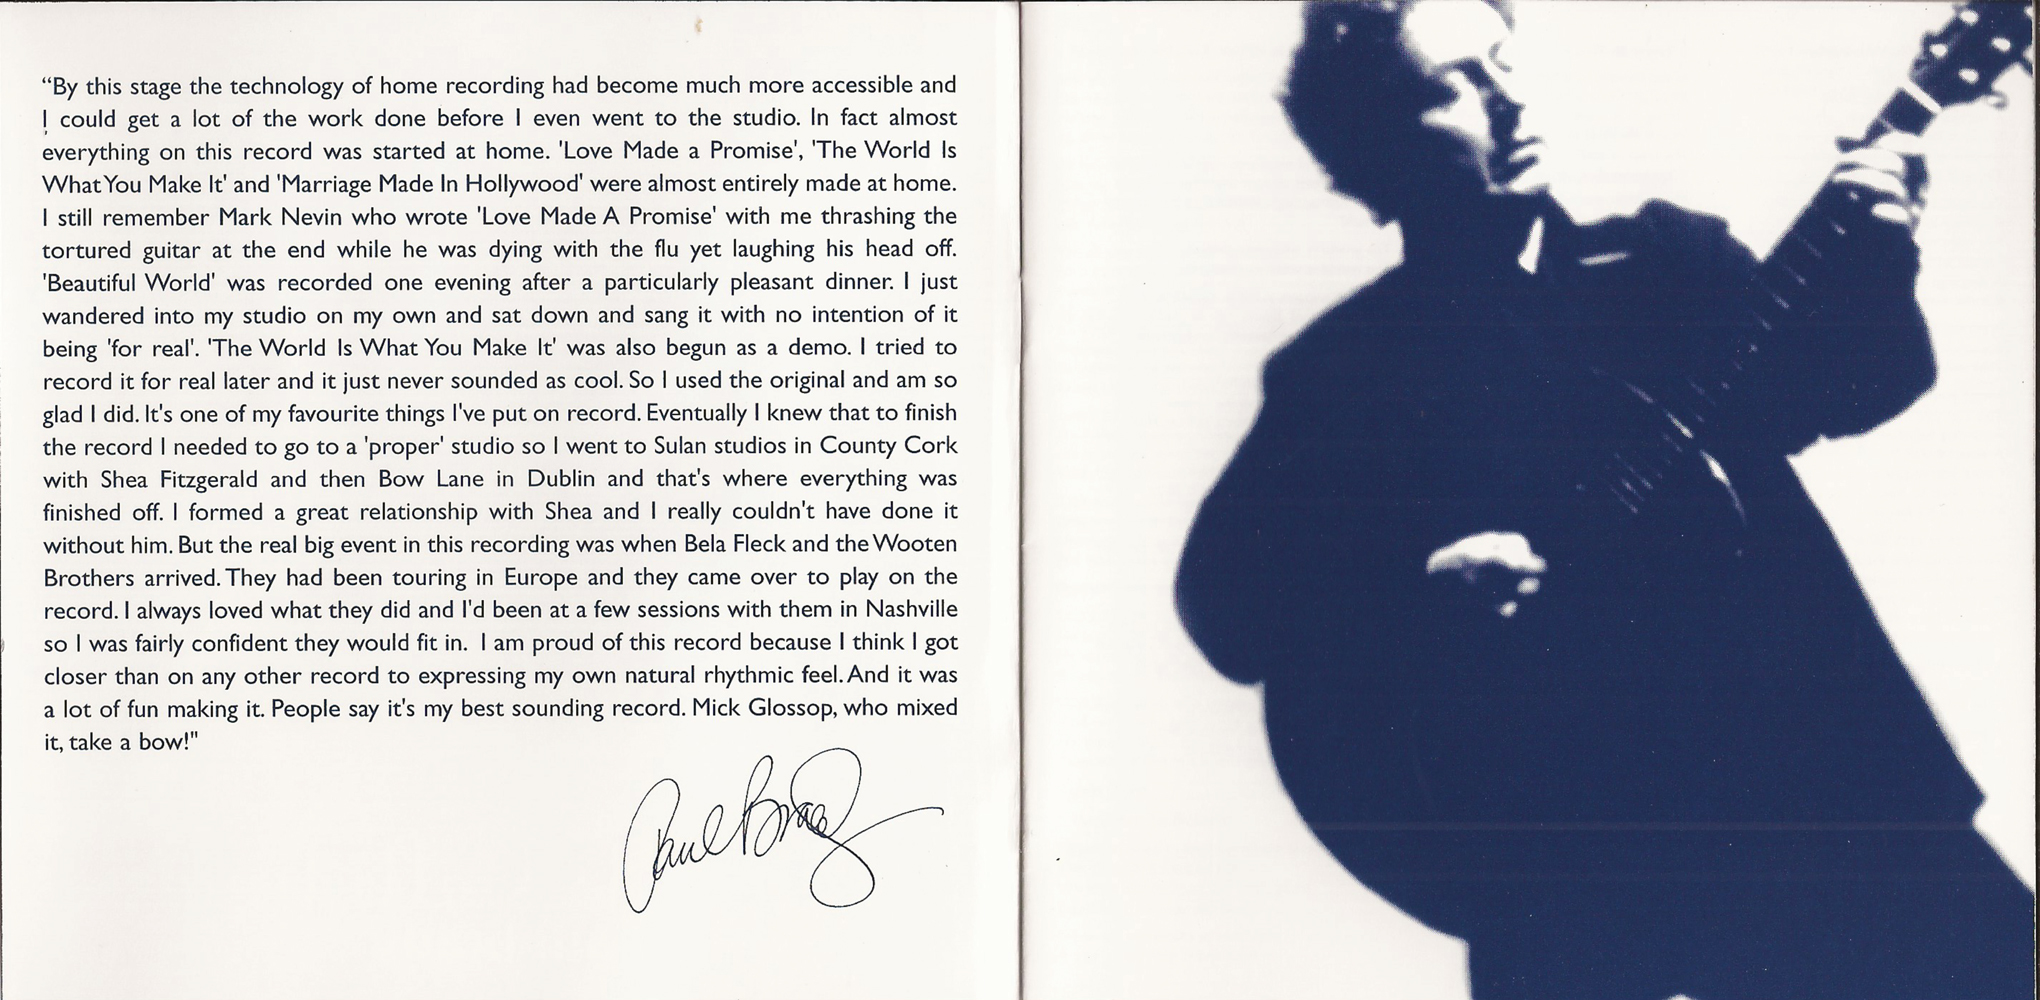 “By this stage the technology of home recording had become much more accessible and
I could get a lot of the work done before I even went to the studio. In fact almost
everything on this record was started at home. 'Love Made a Promise', 'The World Is
What You Make It' and 'Marriage Made In Hollywood' were almost entirely made at home.
I still remember Mark Nevin who wrote 'Love Made A Promise' with me thrashing the
tortured guitar at the end while he was dying with the flu yet laughing his head off.
'Beautiful World' was recorded one evening after a particularly pleasant dinner. I just
wandered into my studio on my own and sat down and sang it with no intention of it
being 'for real'. 'The World Is What You Make It' was also begun as a demo. I tried to
record it for real later and it just never sounded as cool. So I used the original and am so
glad I did. It's one of my favourite things I've put on record. Eventually I knew that to finish
the record I needed to go to a 'proper' studio so I went to Sulan studios in County Cork
with Shea Fitzgerald and then Bow Lane in Dublin and that's where everything was
finished off. I formed a great relationship with Shea and I really couldn't have done it
without him. But the real big event in this recording was when Bela Fleck and the Wooten
Brothers arrived. They had been touring in Europe and they came over to play on the
record. I always loved what they did and I'd been at a few sessions with them in Nashville
so I was fairly confident they would fit in. I am proud of this record because I think I got
closer than on any other record to expressing my own natural rhythmic feel. And it was
a lot of fun making it. People say it's my best sounding record. Mick Glossop, who mixed
it, take a bow!"
Paul Brady